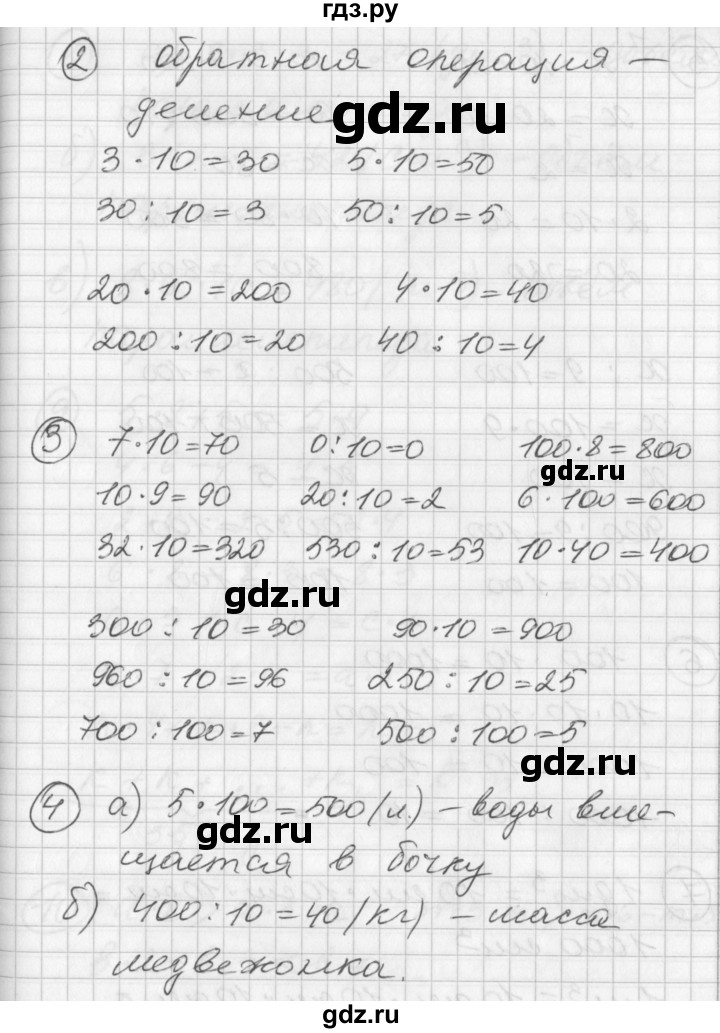 гдз.ру
② обратная операция –
деление
gdz.ru
3 · 10 = 30 5 · 10 = 50
30 : 10 = 3 50 : 10 = 5
20 · 10 = 200 4 · 10 = 40
200 : 10 = 20 40 : 10 = 4
③ 7 · 10 = 70 0 : 10 = 0 100 · 8 = 800
gdz.ru
10 · 9 = 90 20 : 10 = 2 6 · 100 = 600
32 · 10 = 320 530 : 10 = 53 10 · 40 = 400
gdz.ru
300 : 10 = 30 90 · 10 = 900
960 : 10 = 96 250 : 10 = 25
700 : 100 = 7 500 : 100 = 5
gdz.ru
④ а) 5 · 100 = 500 (л.) – воды вме-
gdz.ru
щается в бочку
б) 400 : 10 = 40 (кг) – масса
медвежонка.
gdz.ru